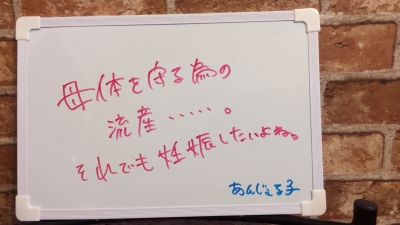 母体を守る為の
流産・・・・・。
それでも妊娠したいよね。
あんじぇる子